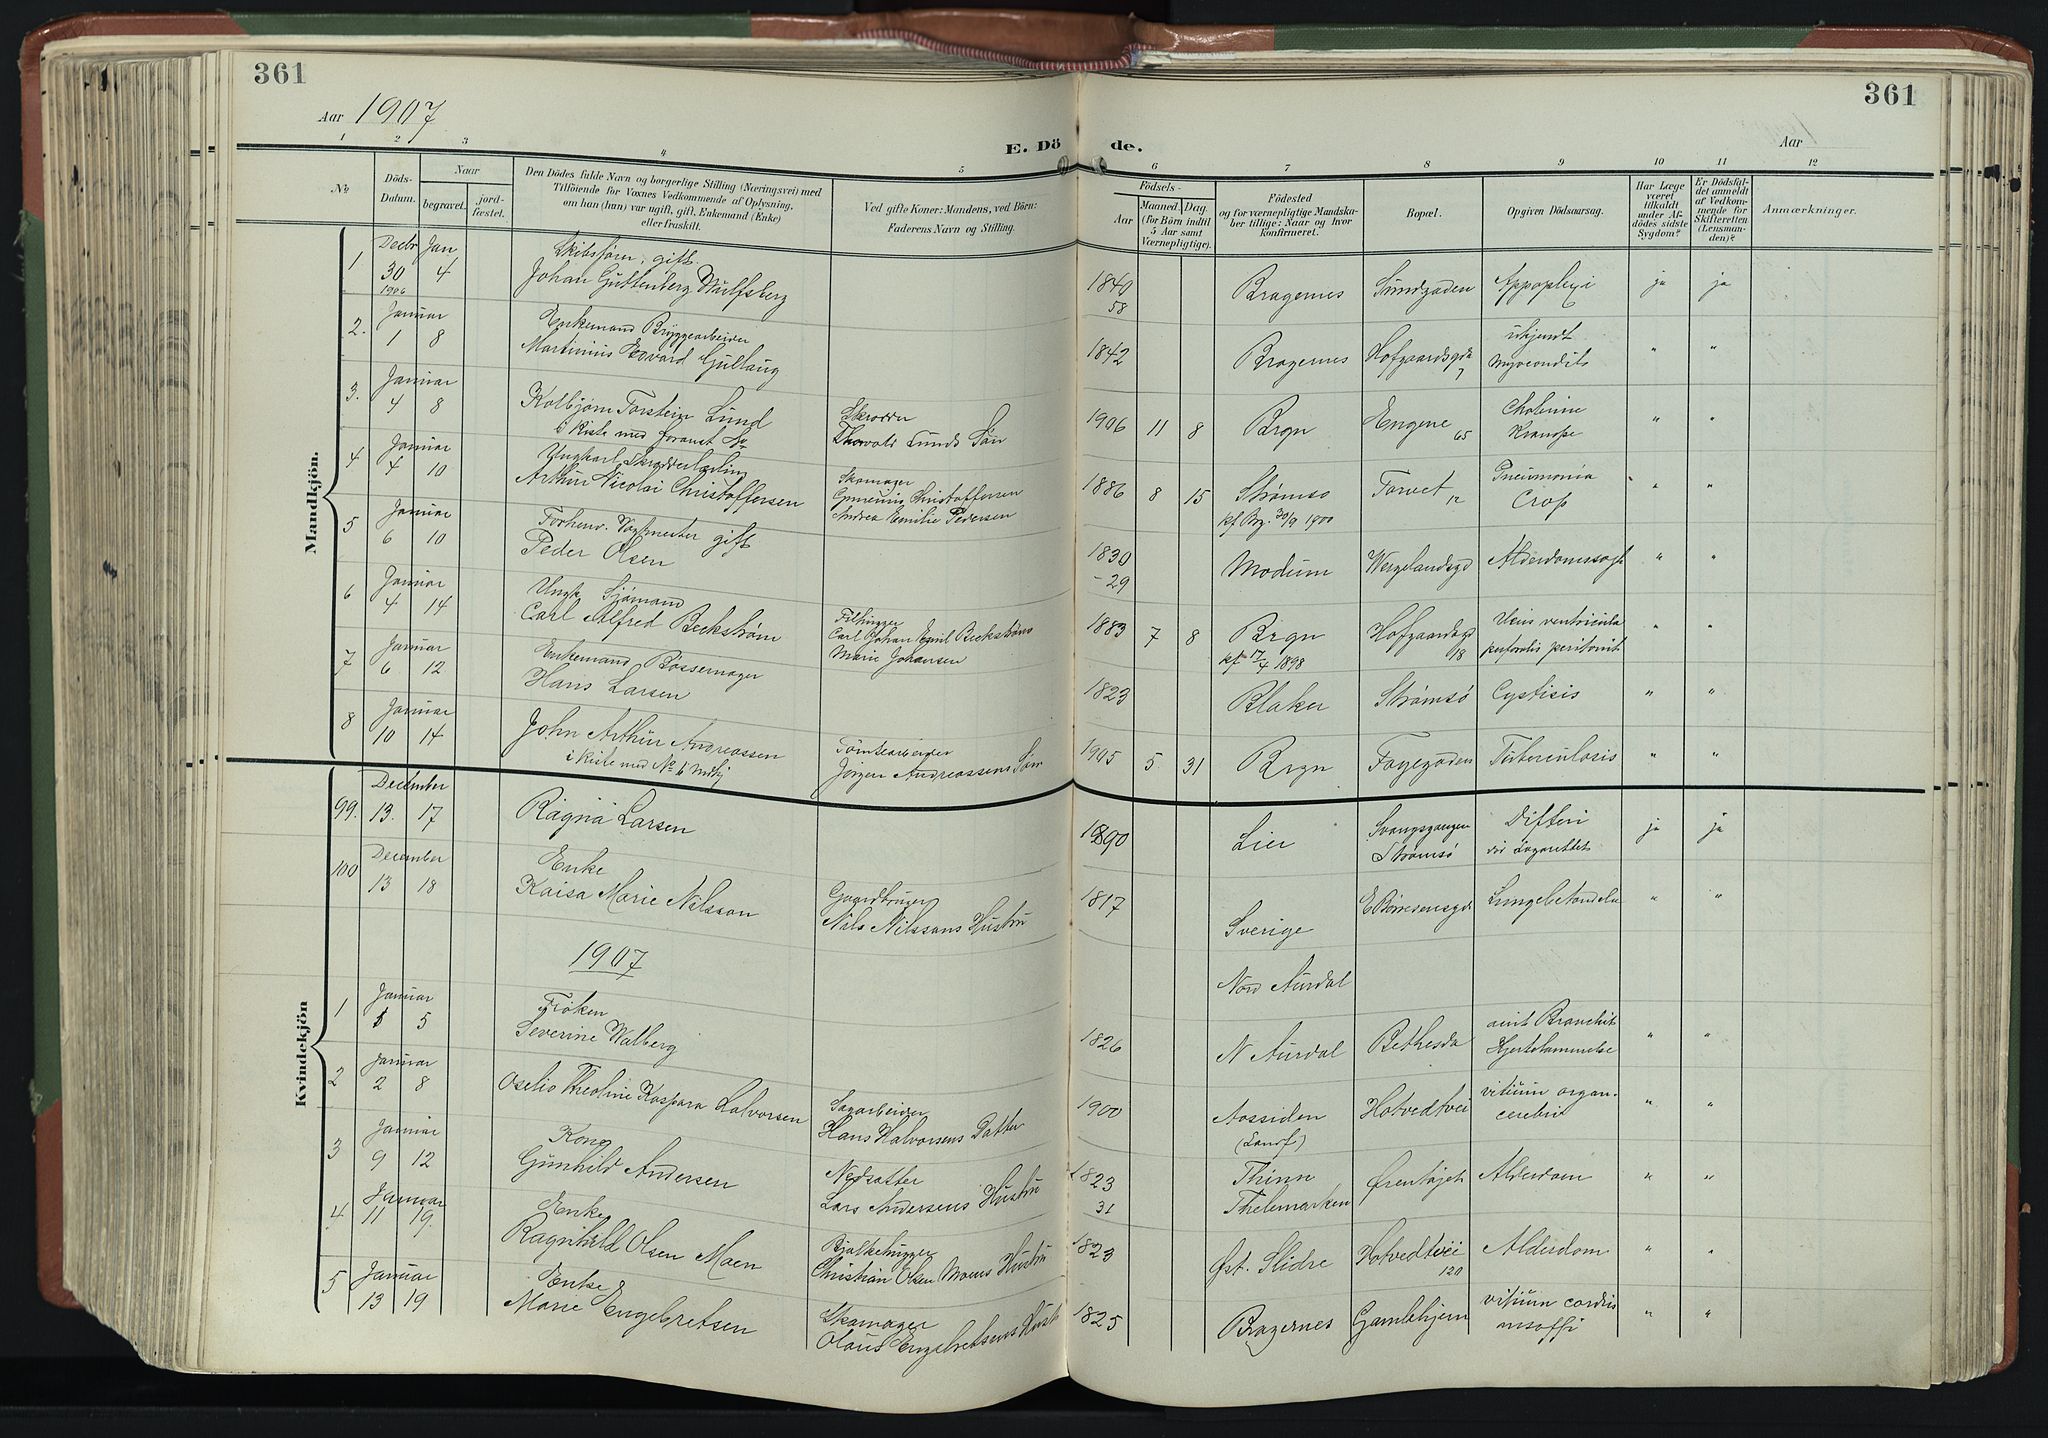 361
361
Aar 1907
Aar
E. Dö de.
1 2 3 4 5 6 7 8 9 10 11 12
№
Döds-Datum.
Naar
begravet.
jord-fæstet.
Den Dödes fulde Navn og borgerlige Stilling (Næringsvei) med
Tilföiende for Voxnes Vedkommende af Oplysning,
om han (hun) var ugift, gift, Enkemand (Enke)
eller fraskilt.
Ved gifte Koner: Mandens, ved Börn:
Faderens Navn og Stilling.
Födsels-
Aar
Maaned, Dag
(for Börn indtil
5 Aar samt
Værnepligtige).
Födested
og for værnepligtige Mandska-
ber tillige: Naar og hvor
konfirmeret.
Bopæl.
Opgiven Dödsaarsag.
Har Læge
været
tilkaldt
under Af-
dödes sidste
Sygdom?
Er Dödsfal-
det anmeldt
af Vedkom-
mende for
Skifteretten
(Lensman-
den)?
Anmærkninger.
Mandkjön.
1 Decbr 30 1906 Jan 4 Skibsfører, gift.
Johan Guttenberg Wulfsberg 1840 58 Bragernes Sundgaden Appoplexi ja ja
2. Januar 1 8 Enkemand Bryggearbeider
Martinius Edvard Gullaug 1842 Bragernes Hofgaardsgd 7 ukjendt " "
3. Januar 4 8 Kolbjørn Torstein Lund
i Kiste med
Skrædder
Thorvald Lunds Søn 1906 11 8 Brgn Engene 65 Cholerine
Krampe " "
4 Januar 4 10 Ungkarl, Skrædderlærling
Arthur Nicolai Christoffersen
Skomager
Christoffersen
Andrea Emilie Pedersen 1886 8 15 Strømsø
kf. Brg. 30/9 1900 Torvet 12 Pneumonia
Crop " "
5 Januar 6 10 Forhenv. Vagtmester gift
Peder Olsen 1830 -29 Modum Wergelandsgd Alderdomssvagh " "
6 Januar 4 14 Ungk. Sjømand
Carl Alfred Beckstrøm
Filhugger
Carl Johan Emil Beckstrøms
Marie Johansen 1883 7 8 Brgn
kf 17/4 1898 Hofgaardsgd 18 Ulcus ventriculi
perforatis peritonit " "
7 Januar 6 12 Enkemand Bøssemager
Hans Larsen 1823 Blaker Strømsø Cystisis " "
8 Januar 10 14 John Arthur Andreassen
i Kiste med No 6 Mdkj
Tomtearbeider
Jørgen Andreassens Søn 1905 5 31 Brgn Fagegaden Tuberculosis " "
Kvindekjön
99. December 13. 17 Ragna Larsen 1890 Lier Svangsgangen
Strømsø Difteri
Lazarettet ja ja
100 December 13 18 Enke
Kaisa Marie Nilsson
Gaardbruger
Nils Nilssons Hustru 1817 Sverige E Børresensgd Lungebetændelse " "
1907
Nord Aurdal
1 Januar 5 Frøken
Severine Walberg 1826 N Aurdal Bethesda Bronchit
Hjertelammelse " "
2 Januar 2 8 Oselio Theoline Kaspara Halvorsen
Sagarbeider
Hans Halvorsens Datter 1900 Aassiden
(Landf) Hotvedtvei vitium organ.
cerebri " "
3 Januar 9 12 Kone
Gunhild Andersen
Nedsætter
Lars Andersens Hustru 1823 31 Thinn
Thelemarken Ørentøjet Alderdom " "
4 Januar 11 19. Enke
Ragnhild Olsen Moen
Bjælkehugger
Christian Olsen Moens Hustru 1823 Øst. Slidre Hotvedtvei 120 Alderdom " "
5 Januar 13 19 Enke
Marie Engebretsen
Skomager
Olaus Engebretsens Hustr 1825 Bragernes Gamlehjem vitium cordis " "